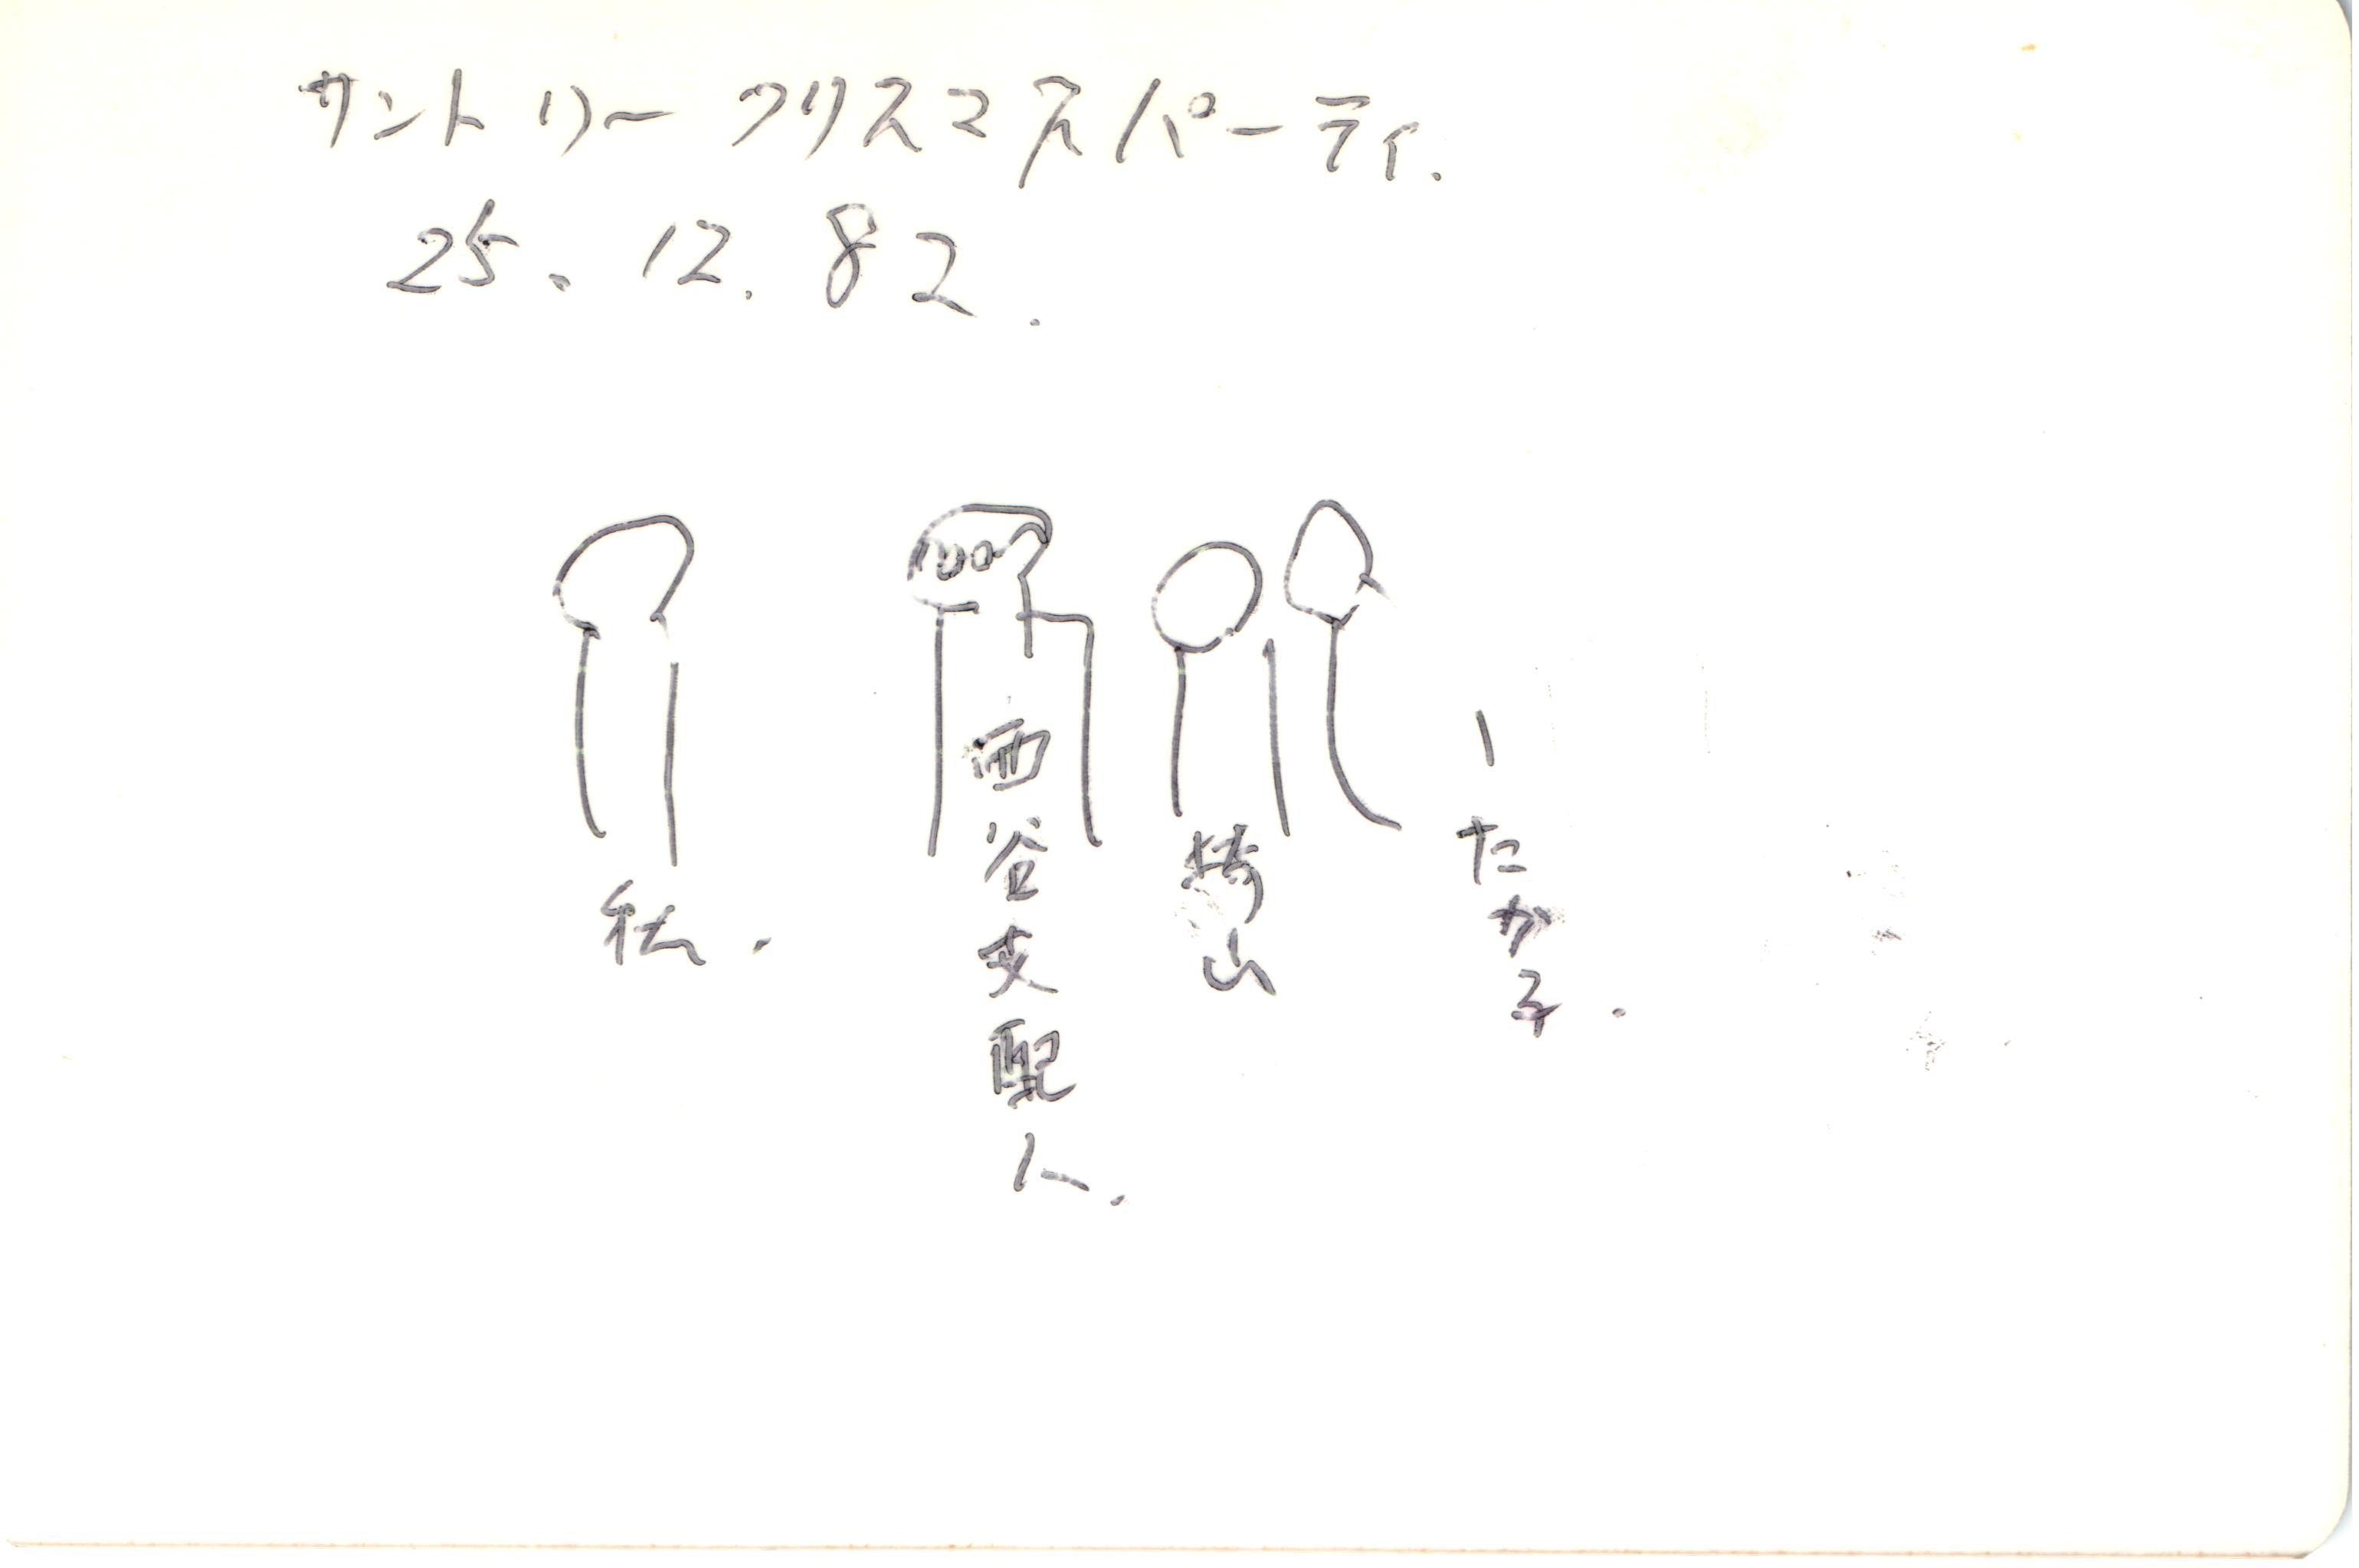 サントリークリスマスパーティ.
25.12.82.
私.
西谷支配人.
山
たか子.